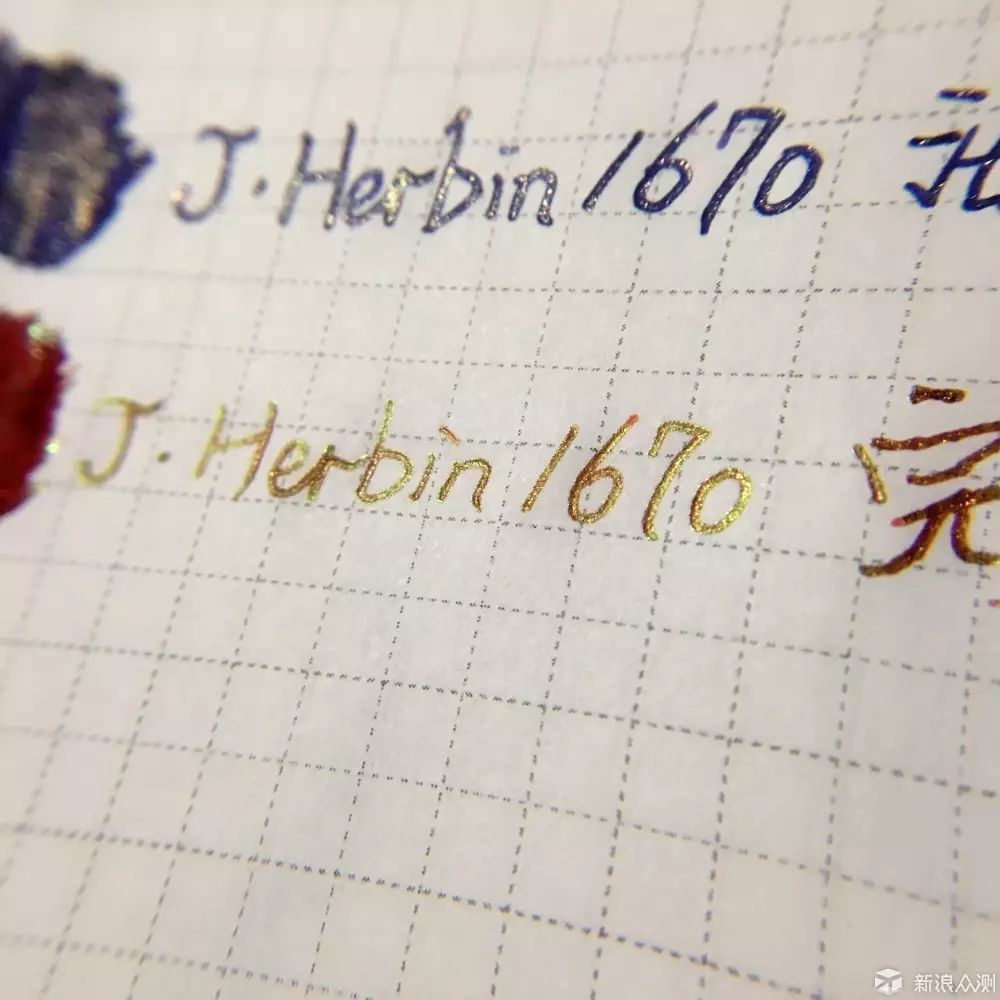 J. Herbin 1670
J. Herbin 1670 完
新浪众测